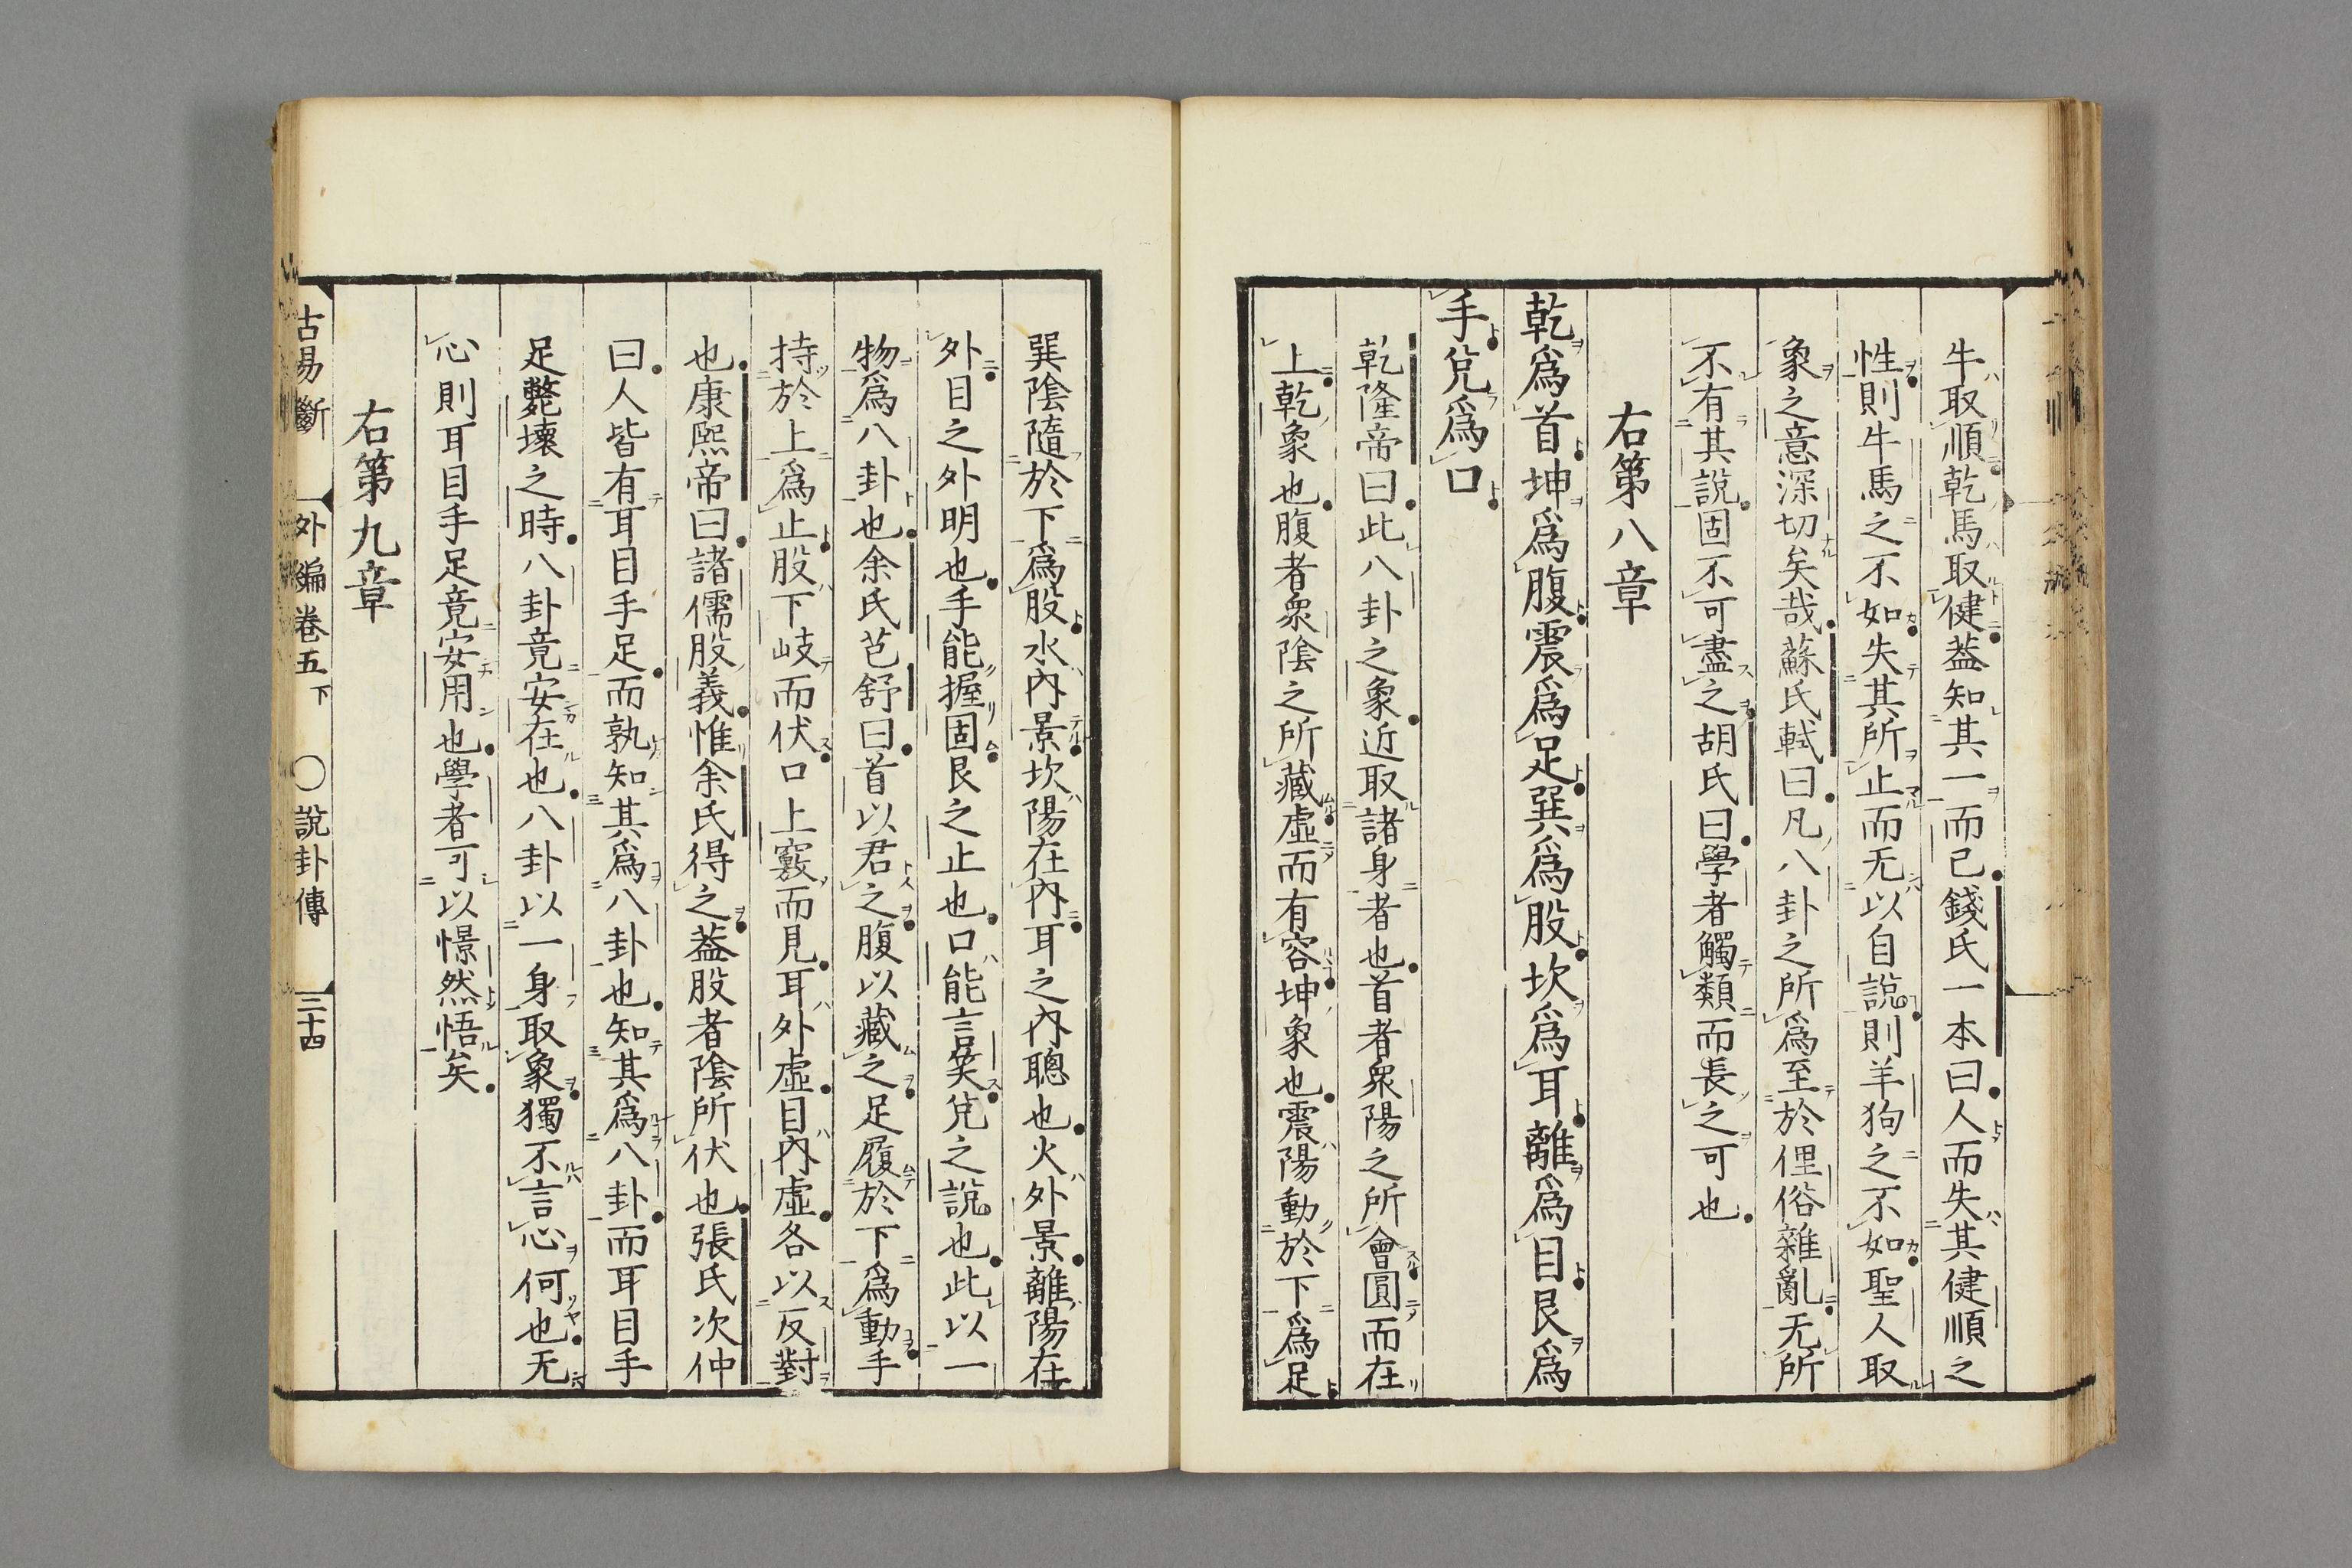 牛取順乾馬取健葢知其一而已錢氏一本曰人而失其健順之
性則牛馬之不如失其所止而无以自說則羊狗之不如聖人取
象之意深切矣哉蘇氏軾曰凡八卦之所爲至於俚俗雜亂无所
不有其說固不可盡之胡氏曰學者觸類而長之可也
右第八章
乾爲首坤爲腹震爲足巽爲股坎爲耳離爲目艮爲
手兌爲口
乾隆帝曰此八卦之象近取諸身者也首者衆陽之所會圓而在
上乾象也腹者衆陰之所藏虛而有容坤象也震陽動於下爲足
巽陰隨於下爲股水內景坎陽在內耳之內聰也火外景離陽在
外目之外明也手能握固艮之止也口能言笑兌之說也此以一
物爲八卦也余氏芑舒曰首以君之腹以藏之足履於下爲動手
持於上爲止股下岐而伏口上竅而見耳外虛目內虛各以反對
也康熙帝曰諸儒股義惟余氏得之葢股者陰所伏也張氏次仲
曰人皆有耳目手足而孰知其爲八卦也知其爲八卦而耳目手
足斃壞之時八卦竟安在也八卦以一身取象獨不言心何也无
心則耳目手足竟安用也學者可以憬然悟矣
右第九章
古易斷 外編卷五下 ○說卦傳 三十四